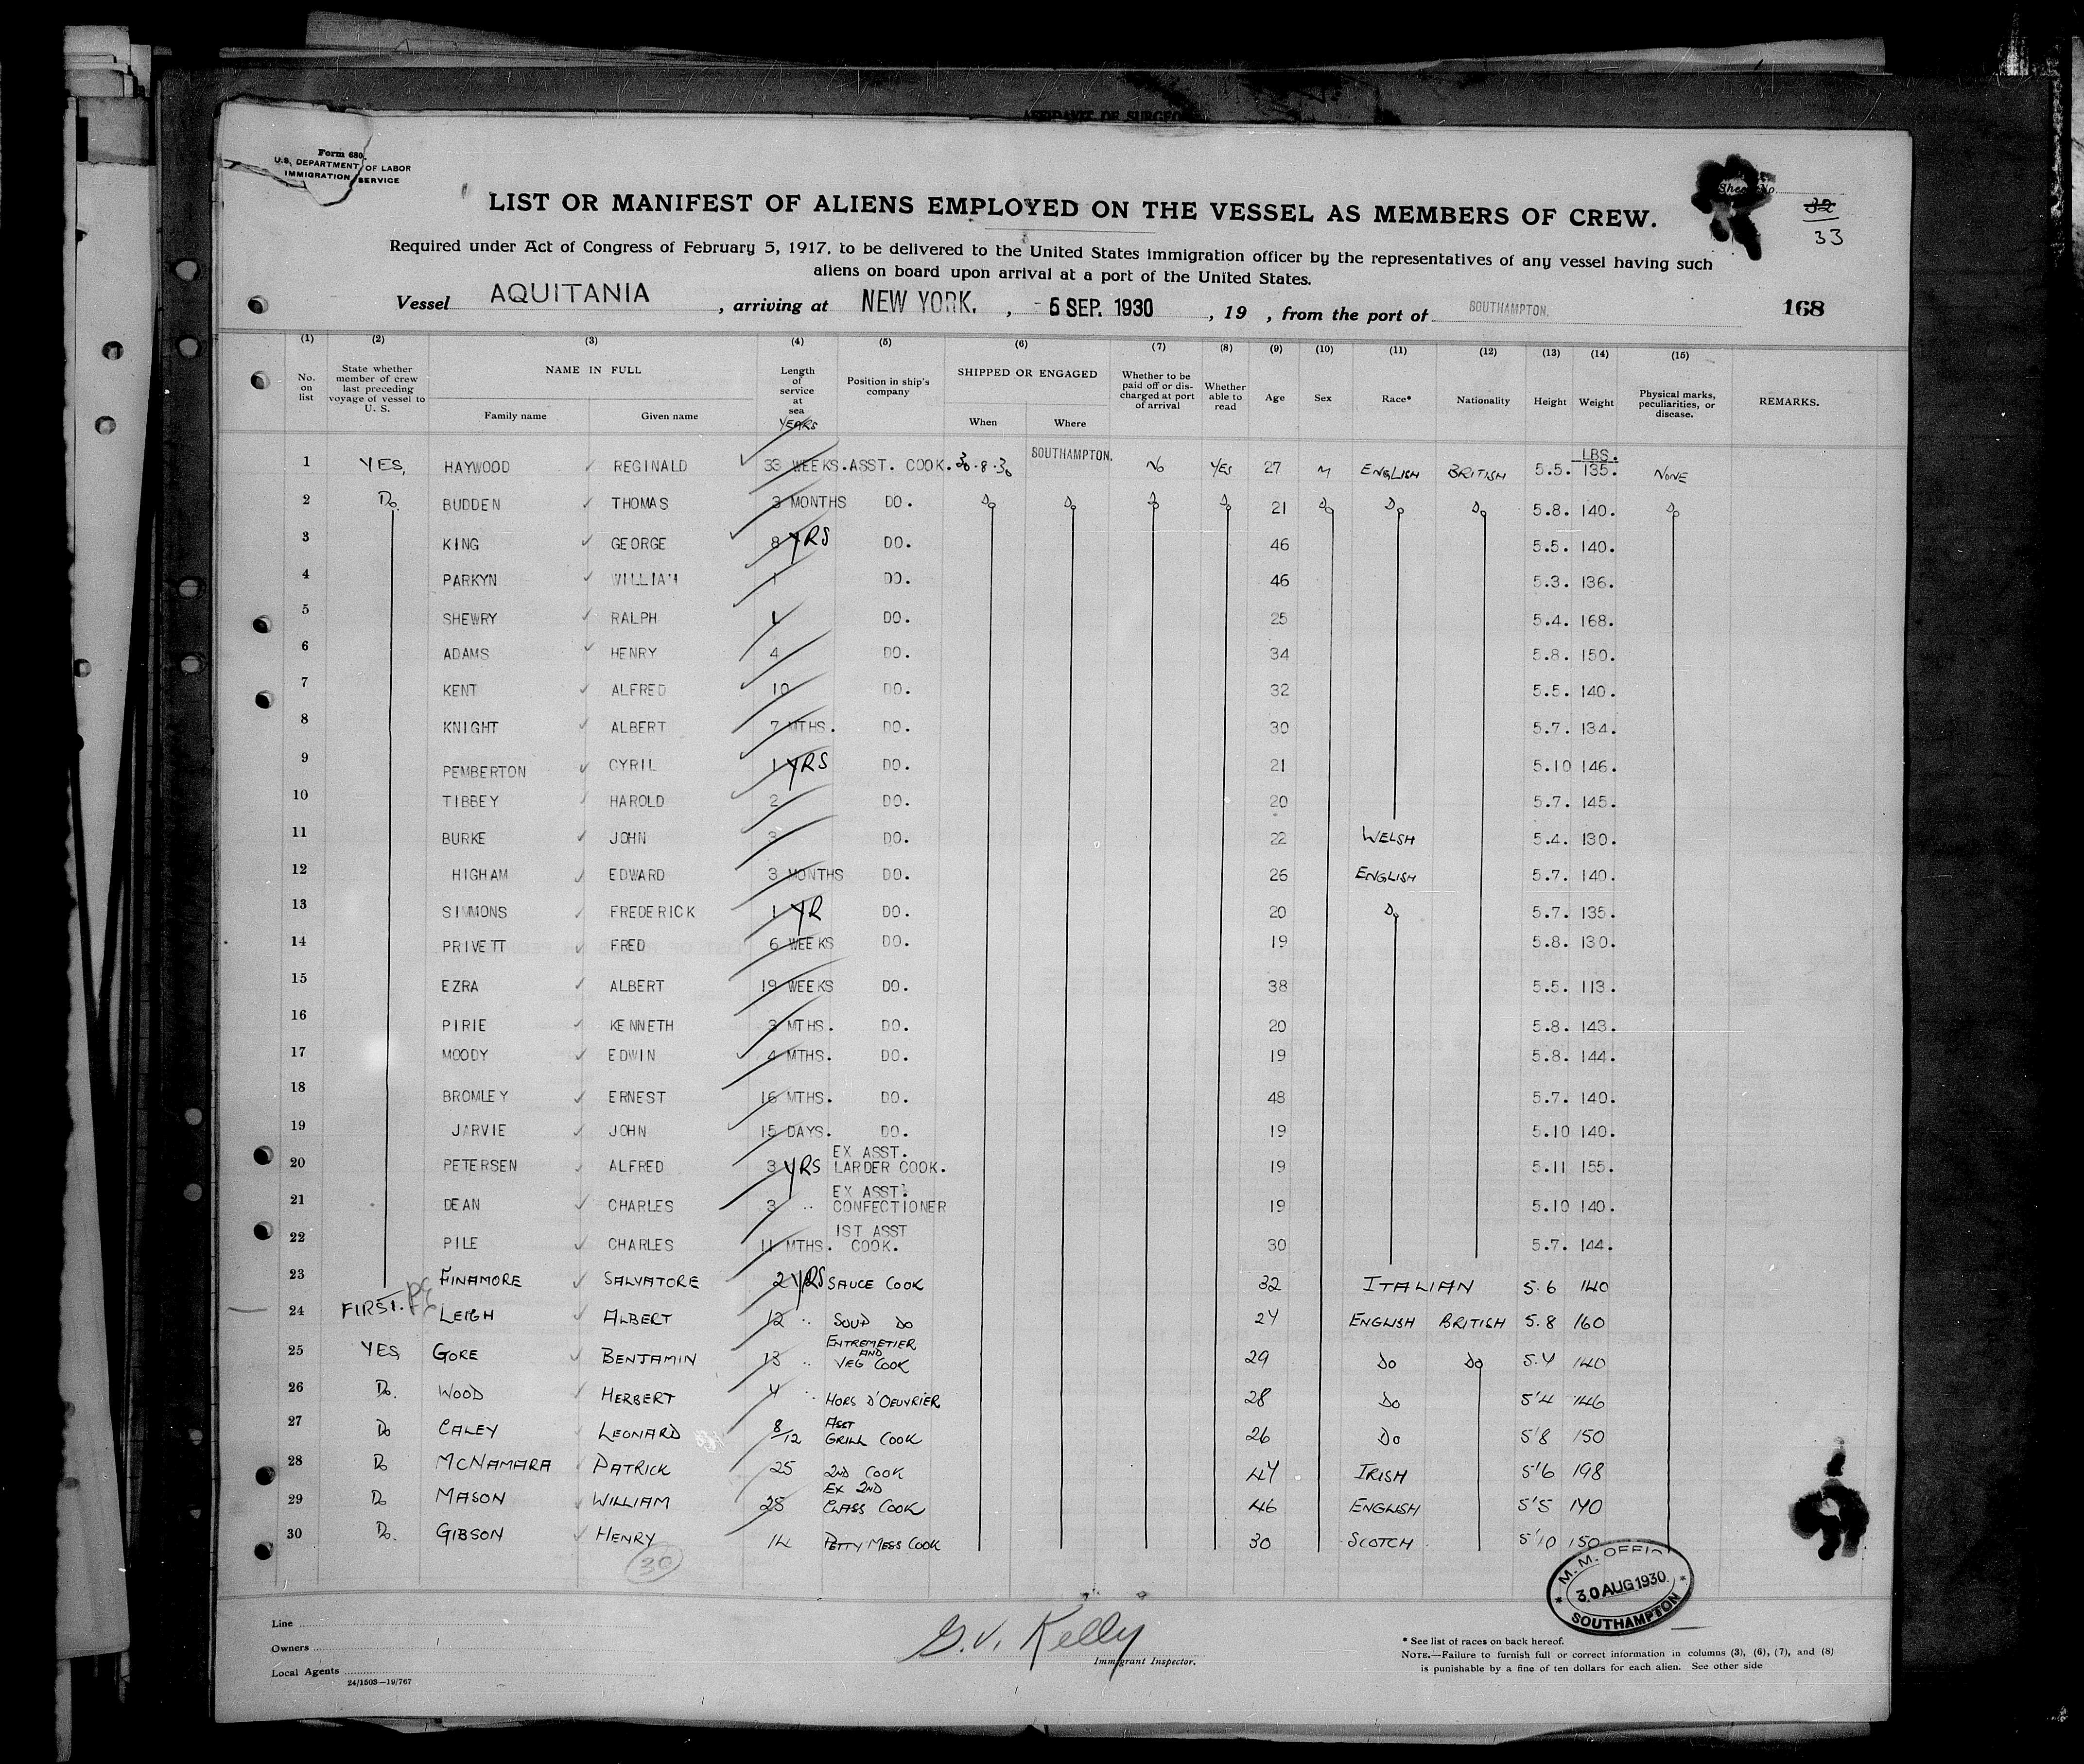 AFFIDAVIT OF SURGEON
Form 680
U.S. DEPARTMENT OF LABOR
IMMIGRATION SERVICE
Sheet No.
32
33
LIST OR MANIFEST OF ALIENS EMPLOYED ON THE VESSEL AS MEMBERS OF CREW.
Required under Act of Congress of February 5, 1917, to be delivered to the United States immigration officer by the representatives of any vessel having such
aliens on board upon arrival at a port of the United States.
Vessel AQUITANIA, arriving at NEW YORK., - 5 SEP. 1930, 19 , from the port of SOUTHAMPTON. 168
(1) (2) (3) (4) (5) (6) (7) (8) (9) (10) (11) (12) (13) (14) (15)
No. on list State whether member of crew last preceding voyage of vessel to U. S. NAME IN FULL Family name Given name Length of service at sea YEARS Position in ship's company SHIPPED OR ENGAGED When Where Whether to be paid off or discharged at port of arrival Whether able to read Age Sex Race* Nationality Height Weight Physical marks, peculiarities, or disease. REMARKS.
LBS.
1 YES, HAYWOOD REGINALD 33 WEEKS. ASST. COOK. 30.8.30 SOUTHAMPTON. No YES 27 M ENGLISH BRITISH 5.5. 135. NONE
2 Do. BUDDEN THOMAS 3 MONTHS DO. Do Do Do Do 21 Do Do Do 5.8. 140. Do
3 KING GEORGE 8 YRS DO. 46 5.5. 140.
4 PARKYN WILLIAM 1 DO. 46 5.3. 136.
5 SHEWRY RALPH DO. 25 5.4. 168.
6 ADAMS HENRY 4 DO. 34 5.8. 150.
7 KENT ALFRED 10 DO. 32 5.5. 140.
8 KNIGHT ALBERT 7 MTHS. DO. 30 5.7. 134.
9 PEMBERTON CYRIL 1 YRS DO. 21 5.10 146.
10 TIBBEY HAROLD 2 DO. 20 5.7. 145.
11 BURKE JOHN 3 DO. 22 WELSH 5.4. 130.
12 HIGHAM EDWARD 3 MONTHS DO. 26 ENGLISH 5.7. 140.
13 SIMMONS FREDERICK 1 YR DO. 20 Do 5.7. 135.
14 PRIVETT FRED 6 WEEKS DO. 19 5.8. 130.
15 EZRA ALBERT 19 WEEKS DO. 38 5.5. 113.
16 PIRIE KENNETH 3 MTHS. DO. 20 5.8. 143.
17 MOODY EDWIN 4 MTHS. DO. 19 5.8. 144.
18 BROMLEY ERNEST 16 MTHS. DO. 48 5.7. 140.
19 JARVIE JOHN 15 DAYS. DO. 19 5.10 140.
20 PETERSEN ALFRED 3 YRS EX ASST. LARDER COOK. 19 5.11 155.
21 DEAN CHARLES 3 " EX ASST. CONFECTIONER 19 5.10 140.
22 PILE CHARLES 11 MTHS. 1ST ASST COOK. 30 5.7. 144.
23 FINAMORE SALVATORE 2 YRS SAUCE COOK 32 ITALIAN 5.6 140
24 FIRST. LEIGH ALBERT 12 " SOUP DO 24 ENGLISH BRITISH 5.8 160
25 YES, GORE BENJAMIN 13 " ENTREMETIER AND VEG COOK 29 Do Do 5.4 140
26 Do. WOOD HERBERT 4 " HORS D'OEUVRIER 28 Do 5'4 146
27 Do CALEY LEONARD 8/12 ASST GRILL COOK 26 Do 5'8 150
28 Do McNAMARA PATRICK 25 2ND COOK 47 IRISH 5'6 198
29 Do MASON WILLIAM 25 EX 2ND CLASS COOK 46 ENGLISH 5'5 140
30 Do. GIBSON HENRY 14 PETTY MESS COOK 30 SCOTCH 5'10 150
30
M. M. OFFIC
30 AUG 1930
SOUTHAMPTON
Line
Owners
Local Agents
24/1503—19/767
G. V. Kelly
Immigrant Inspector.
* See list of races on back hereof.
NOTE.—Failure to furnish full or correct information in columns (3), (6), (7), and (8)
is punishable by a fine of ten dollars for each alien. See other side